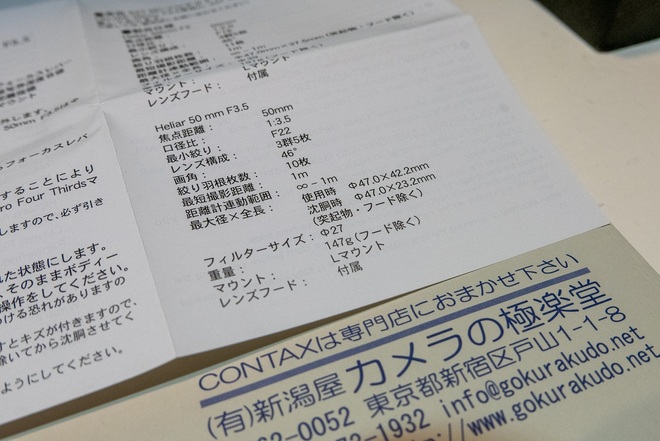 マウント：　Lマウント
レンズフード：　付属
Heliar 50 mm F3.5
焦点距離：　50mm
口径比：　1:3.5
最小絞り：　F22
レンズ構成：　3群5枚
画角：　46°
絞り羽根枚数：　10枚
最短撮影距離：　1m
距離計連動範囲：　∞－1m
最大径×全長：　使用時　Φ47.0×42.2mm
沈胴時　Φ47.0×23.2mm
(突起物・フード除く)
フィルターサイズ：　Φ27
重量：　147g(フード除く)
マウント：　Lマウント
レンズフード：　付属
することにより
ro Four Thirdsマ
しますので、必ず引き
れた状態にします。
そのままボディー
操作をしてください。
ける恐れがありますの
すとキズが付きますので、
除いてから沈胴させてく
ようにしてください。
CONTAXは専門店におまかせ下さい
(有)新潟屋 カメラの極楽堂
-0052 東京都新宿区戸山1-1-8
-1932 info@gokurakudo.net
://www.gokurakudo.net